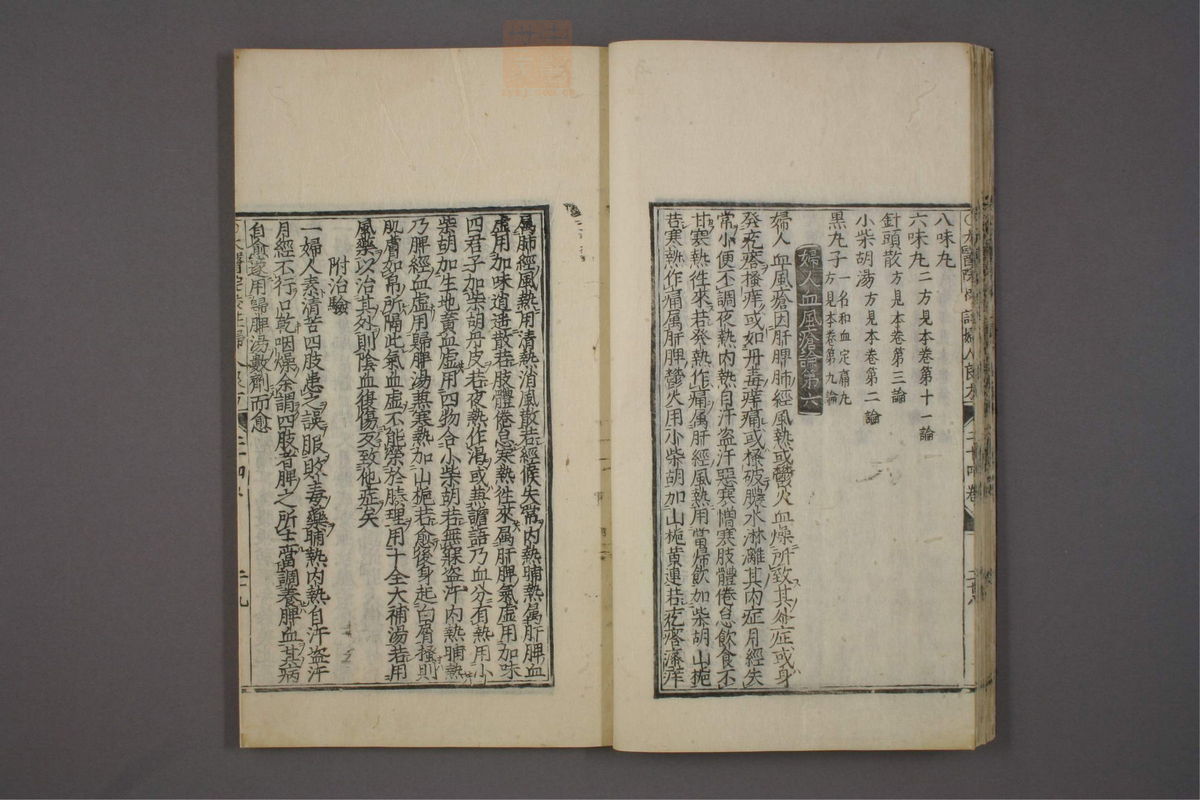 八味丸
六味丸二方見本卷第十一論
針頭散方見本卷第三論
小柴胡湯方見本卷第二論
黑丸子一名和血定痛丸方見本卷第九論
婦人血風瘡論第六
婦人血風瘡因肝脾肺經風熱或鬱火血燥所致其外症或身
發疙瘩搔痒或如丹毒痒痛或搔破膿水淋漓其内症月經失
常小便不調夜熱内熱自汗盗汗惡寒憎寒肢體倦怠飲食不
甘寒熱徃來若發熱作痛属肝經風熱用當歸飲加柴胡山梔
若寒熱作痛属肝脾鬱火用小柴胡加山梔黄連若疙瘩瘙痒
属肺經風熱用清熱消風散若經候失常内熱晡熱属肝脾血
虚用加味逍遥散若肢體倦怠寒熱徃來属肝脾氣虚用加味
四君子加柴胡丹皮若夜熱作渴或兼譫語乃血分有熱用小
柴胡加生地黄血虚用四物合小柴胡若無寐盗汗内熱晡熱
乃脾經血虚用歸脾湯兼寒熱加山梔若愈後身起白屑搔則
肌膚如帛所隔此氣血虚不能榮於腠理用十全大補湯若用
風藥以治其外則陰血復傷反致他症矣
附治驗
一婦人素清苦四肢患之誤服敗毒藥晡熱内熱自汗盗汗
月經不行口乾咽燥余謂四肢者脾之所主當調養脾血其病
自愈遂用歸脾湯數劑而愈
二十四卷